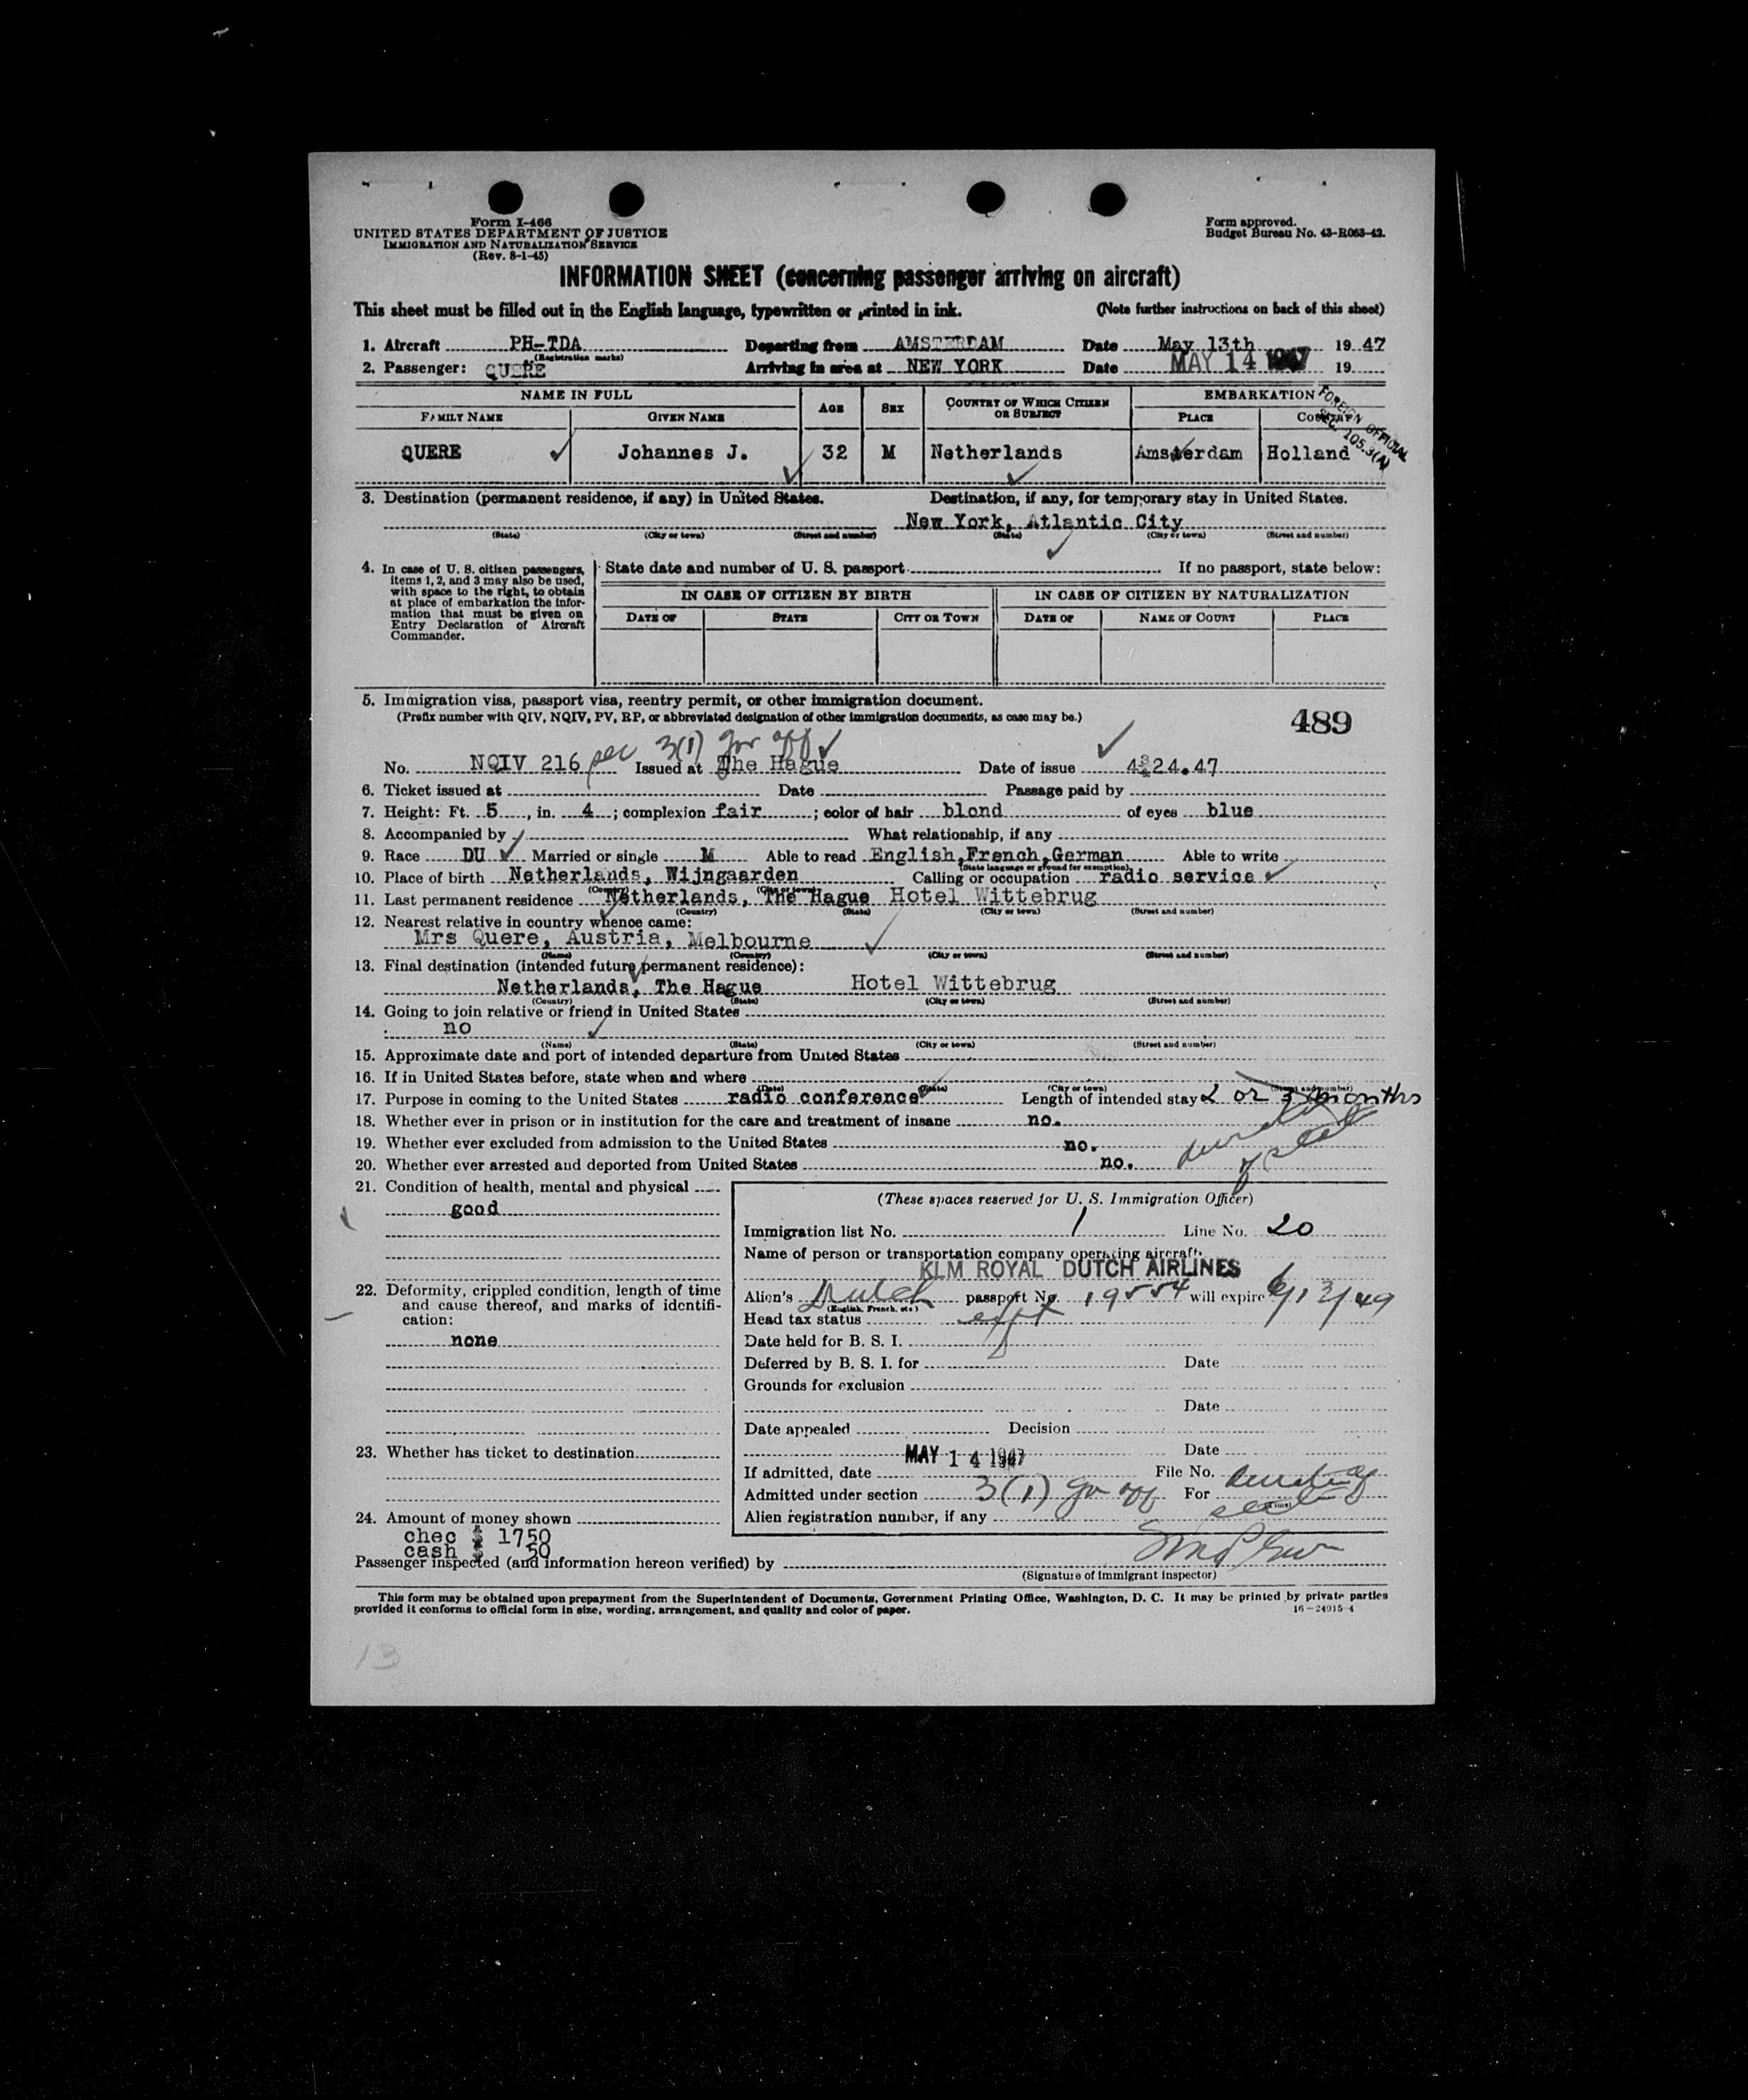 Form I-466
UNITED STATES DEPARTMENT OF JUSTICE
IMMIGRATION AND NATURALIZATION SERVICE
(Rev. 8-1-45)
Form approved.
Budget Bureau No. 43-R063-42.
INFORMATION SHEET (concerning passenger arriving on aircraft)
This sheet must be filled out in the English language, typewritten or printed in ink. (Note further instructions on back of this sheet)
1. Aircraft PH-TDA Departing from AMSTERDAM Date May 13th 19 47
(Registration marks)
2. Passenger: QUERE Arriving in area at NEW YORK Date MAY 14 1947 19
NAME IN FULL AGE SEX COUNTRY OF WHICH CITIZEN OR SUBJECT EMBARKATION
FAMILY NAME GIVEN NAME PLACE COUNTRY
FOREIGN OFFICIAL
SEC. 105.3(A)
QUERE Johannes J. 32 M Netherlands Amsterdam Holland
3. Destination (permanent residence, if any) in United States. Destination, if any, for temporary stay in United States.
New York, Atlantic City
(State) (City or town) (Street and number) (State) (City or town) (Street and number)
4. In case of U. S. citizen passengers, items 1, 2, and 3 may also be used, with space to the right, to obtain at place of embarkation the information that must be given on Entry Declaration of Aircraft Commander.
State date and number of U. S. passport If no passport, state below:
IN CASE OF CITIZEN BY BIRTH IN CASE OF CITIZEN BY NATURALIZATION
DATE OF STATE CITY OR TOWN DATE OF NAME OF COURT PLACE
5. Immigration visa, passport visa, reentry permit, or other immigration document.
(Prefix number with QIV, NQIV, PV, RP, or abbreviated designation of other immigration documents, as case may be.)
489
sec 3(1) gov off
No. NQIV 216 Issued at The Hague Date of issue 4.24.47
6. Ticket issued at Date Passage paid by
7. Height: Ft. 5, in. 4; complexion fair; color of hair blond of eyes blue
8. Accompanied by What relationship, if any
9. Race DU Married or single M Able to read English,French,German Able to write
(State language or ground for exemption)
10. Place of birth Netherlands, Wijngaarden Calling or occupation radio service
(Country) (City or town)
11. Last permanent residence Netherlands, The Hague Hotel Wittebrug
(Country) (State) (City or town) (Street and number)
12. Nearest relative in country whence came:
Mrs Quere, Austria, Melbourne
(Name) (Country) (City or town) (Street and number)
13. Final destination (intended future permanent residence):
Netherlands, The Hague Hotel Wittebrug
(Country) (State) (City or town) (Street and number)
14. Going to join relative or friend in United States
no
(Name) (State) (City or town) (Street and number)
15. Approximate date and port of intended departure from United States
16. If in United States before, state when and where
(Date) (State) (City or town) (Street and number)
17. Purpose in coming to the United States radio conference Length of intended stay 2 or 3 months
18. Whether ever in prison or in institution for the care and treatment of insane no.
19. Whether ever excluded from admission to the United States no.
20. Whether ever arrested and deported from United States no.
21. Condition of health, mental and physical
good
22. Deformity, crippled condition, length of time and cause thereof, and marks of identification:
none
23. Whether has ticket to destination
24. Amount of money shown
chec $ 1750
cash $ 50
(These spaces reserved for U. S. Immigration Officer)
Immigration list No. 1 Line No. 20
Name of person or transportation company operating aircraft
KLM ROYAL DUTCH AIRLINES
Alien's Dutch passport No. 19554 will expire 6/13/49
(English, French, etc.)
Head tax status expt
Date held for B. S. I.
Deferred by B. S. I. for Date
Grounds for exclusion
Date
Date appealed Decision
Date
MAY 14 1947
If admitted, date File No.
Admitted under section 3(1) gov off For
(Time)
Alien registration number, if any
Passenger inspected (and information hereon verified) by
(Signature of immigrant inspector)
This form may be obtained upon prepayment from the Superintendent of Documents, Government Printing Office, Washington, D. C. It may be printed by private parties
provided it conforms to official form in size, wording, arrangement, and quality and color of paper.
16-24915-4
13